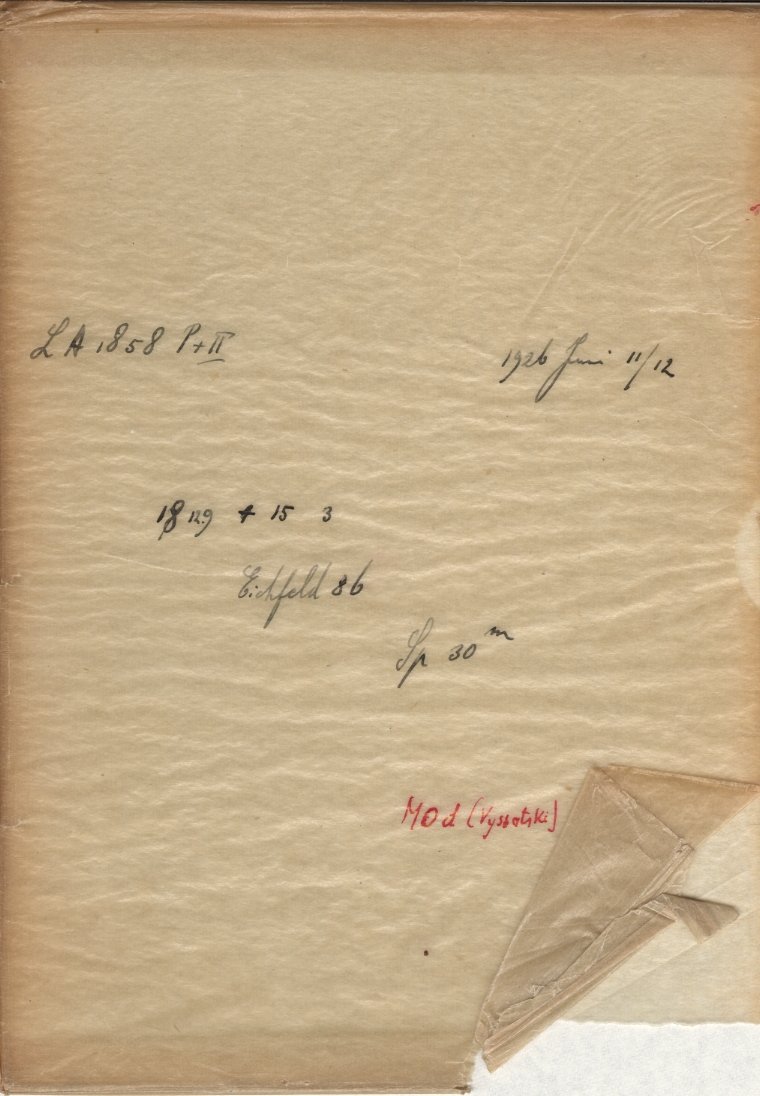 LA 1858 P+II 1926 Juni 11/12
18 12.9 + 15 3
Eichfeld 86
Sp 30 m
MOd (Vyssotski)